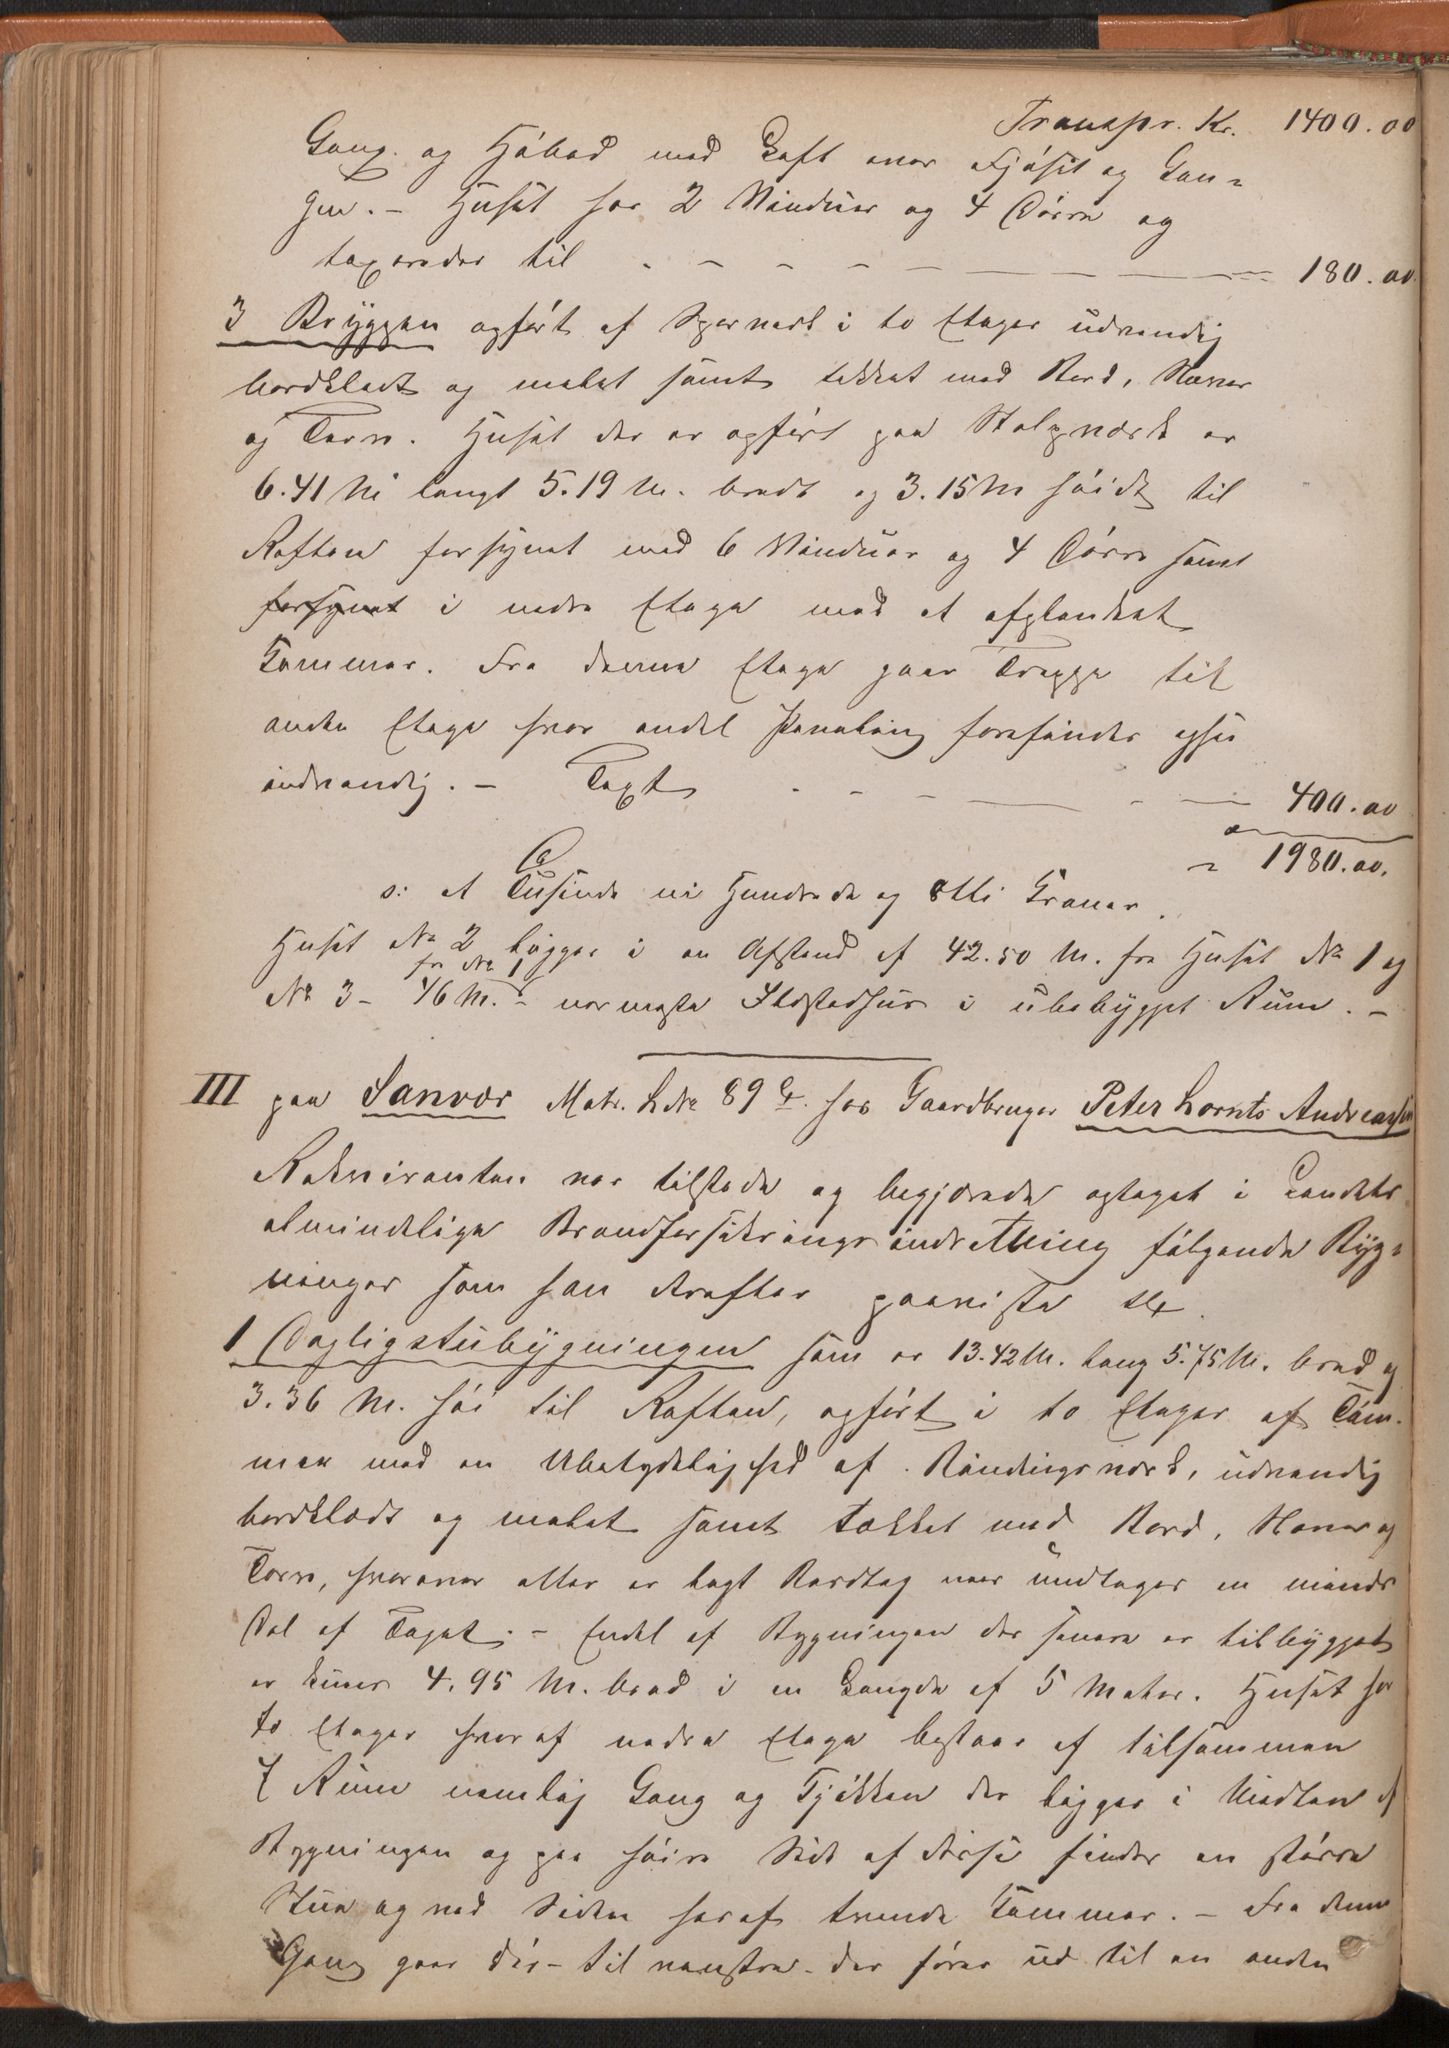 Transpr. Kr. 1400.00
Gang og Høbod med Loft over Fjøsit og Gan=
gen. - Huset har 2 Vinduer og 4 Dørre og
taxeredes til - - - - - 180.00
3 Bryggen opført af Sperverk i to Etager udvendig
bordklædt og malet samt tækket med Bord, Næver
og Torv. Huset der er opført paa Stolpværk er
6.41 M langt 5.19 M. bredt og 3.15 M høidt til
Raften forsynet med 6 Vinduer og 4 Dørre samt
forsynet i nedre Etage med et afplanket
Kammer. Fra denne Etage gaar Trappe til
anden Etage hvor endel Panaling forefindes ogsaa
indvendig. - Taxt - - - 400.00
= 1980.00.
o: et Tusinde ni Hundrede og otti Kroner.
Huset No 2 ligger i en Afstand af 42.50 M. fra Huset No 1 og
fra No 1
No 3 - 46 M. - nærmeste Ildstedhus i ubebygget Rum. -
III paa Sanvær Matr. L No 89 for Gaardbruger Peter Lornts Andreassen
Rekvirenten var tilstede og begjærede optaget i Landets
almindelige Brandforsikringsindretning følgende Byg=
ninger som han derefter paaviste
1 Dagligstubygningen som er 13.42 M. lang 5.75 M. bred og
3.36 M. høi til Raften, opført i to Etager af Tøm-
mer med en Ubetydelighed af Bindingsværk, udvendig
bordklædt og malet samt tækket med Bord, Næver og
Torv, hvorover atter er lagt Bordtag naar undtages en mindre
Del af Taget. - Endel af Bygningen der senere er tilbygget
er kuns 4.95 M. bred i en Længde af 5 Meter. Huset har
to Etager hvoraf nedre Etage bestaar af tilsammen
7 Rum nemlig Gang og Kjøkken der ligger i Midten af
Bygningen og paa høire Side af disse findes en større
Stue og ved Siden heraf tvende Kammer. - Fra denne
Gang gaar Dør til venstre der fører ud til en anden